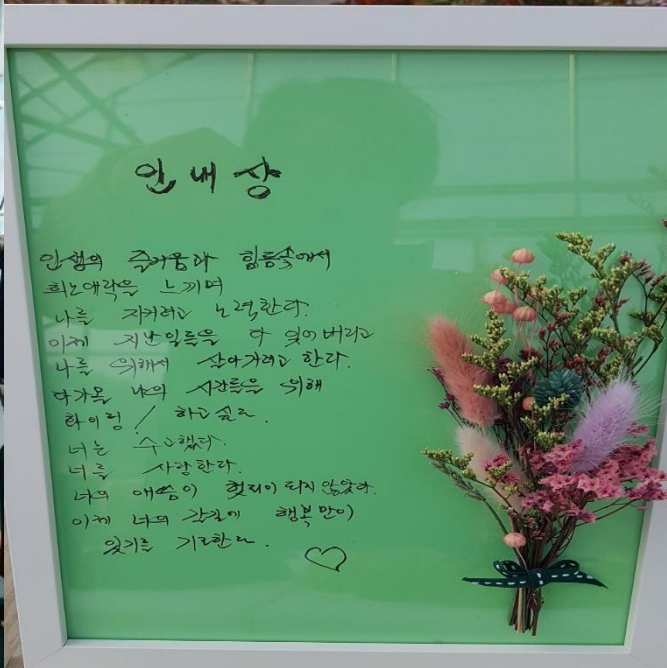 인내상
인생의 즐거움과 힘듬속에서
희노애락을 느끼며
나를 지키려고 노력한다.
이제 지난일들을 다 잊어버리고
나를 위해서 살아가려고 한다.
다가올 나의 시간들을 위해
화이팅! 하고싶다.
너는 수고했다.
너를 사랑한다.
너의 애씀이 헛되이 되지 않았다.
이제 너의 앞길에 행복만이
있기를 기도한다.